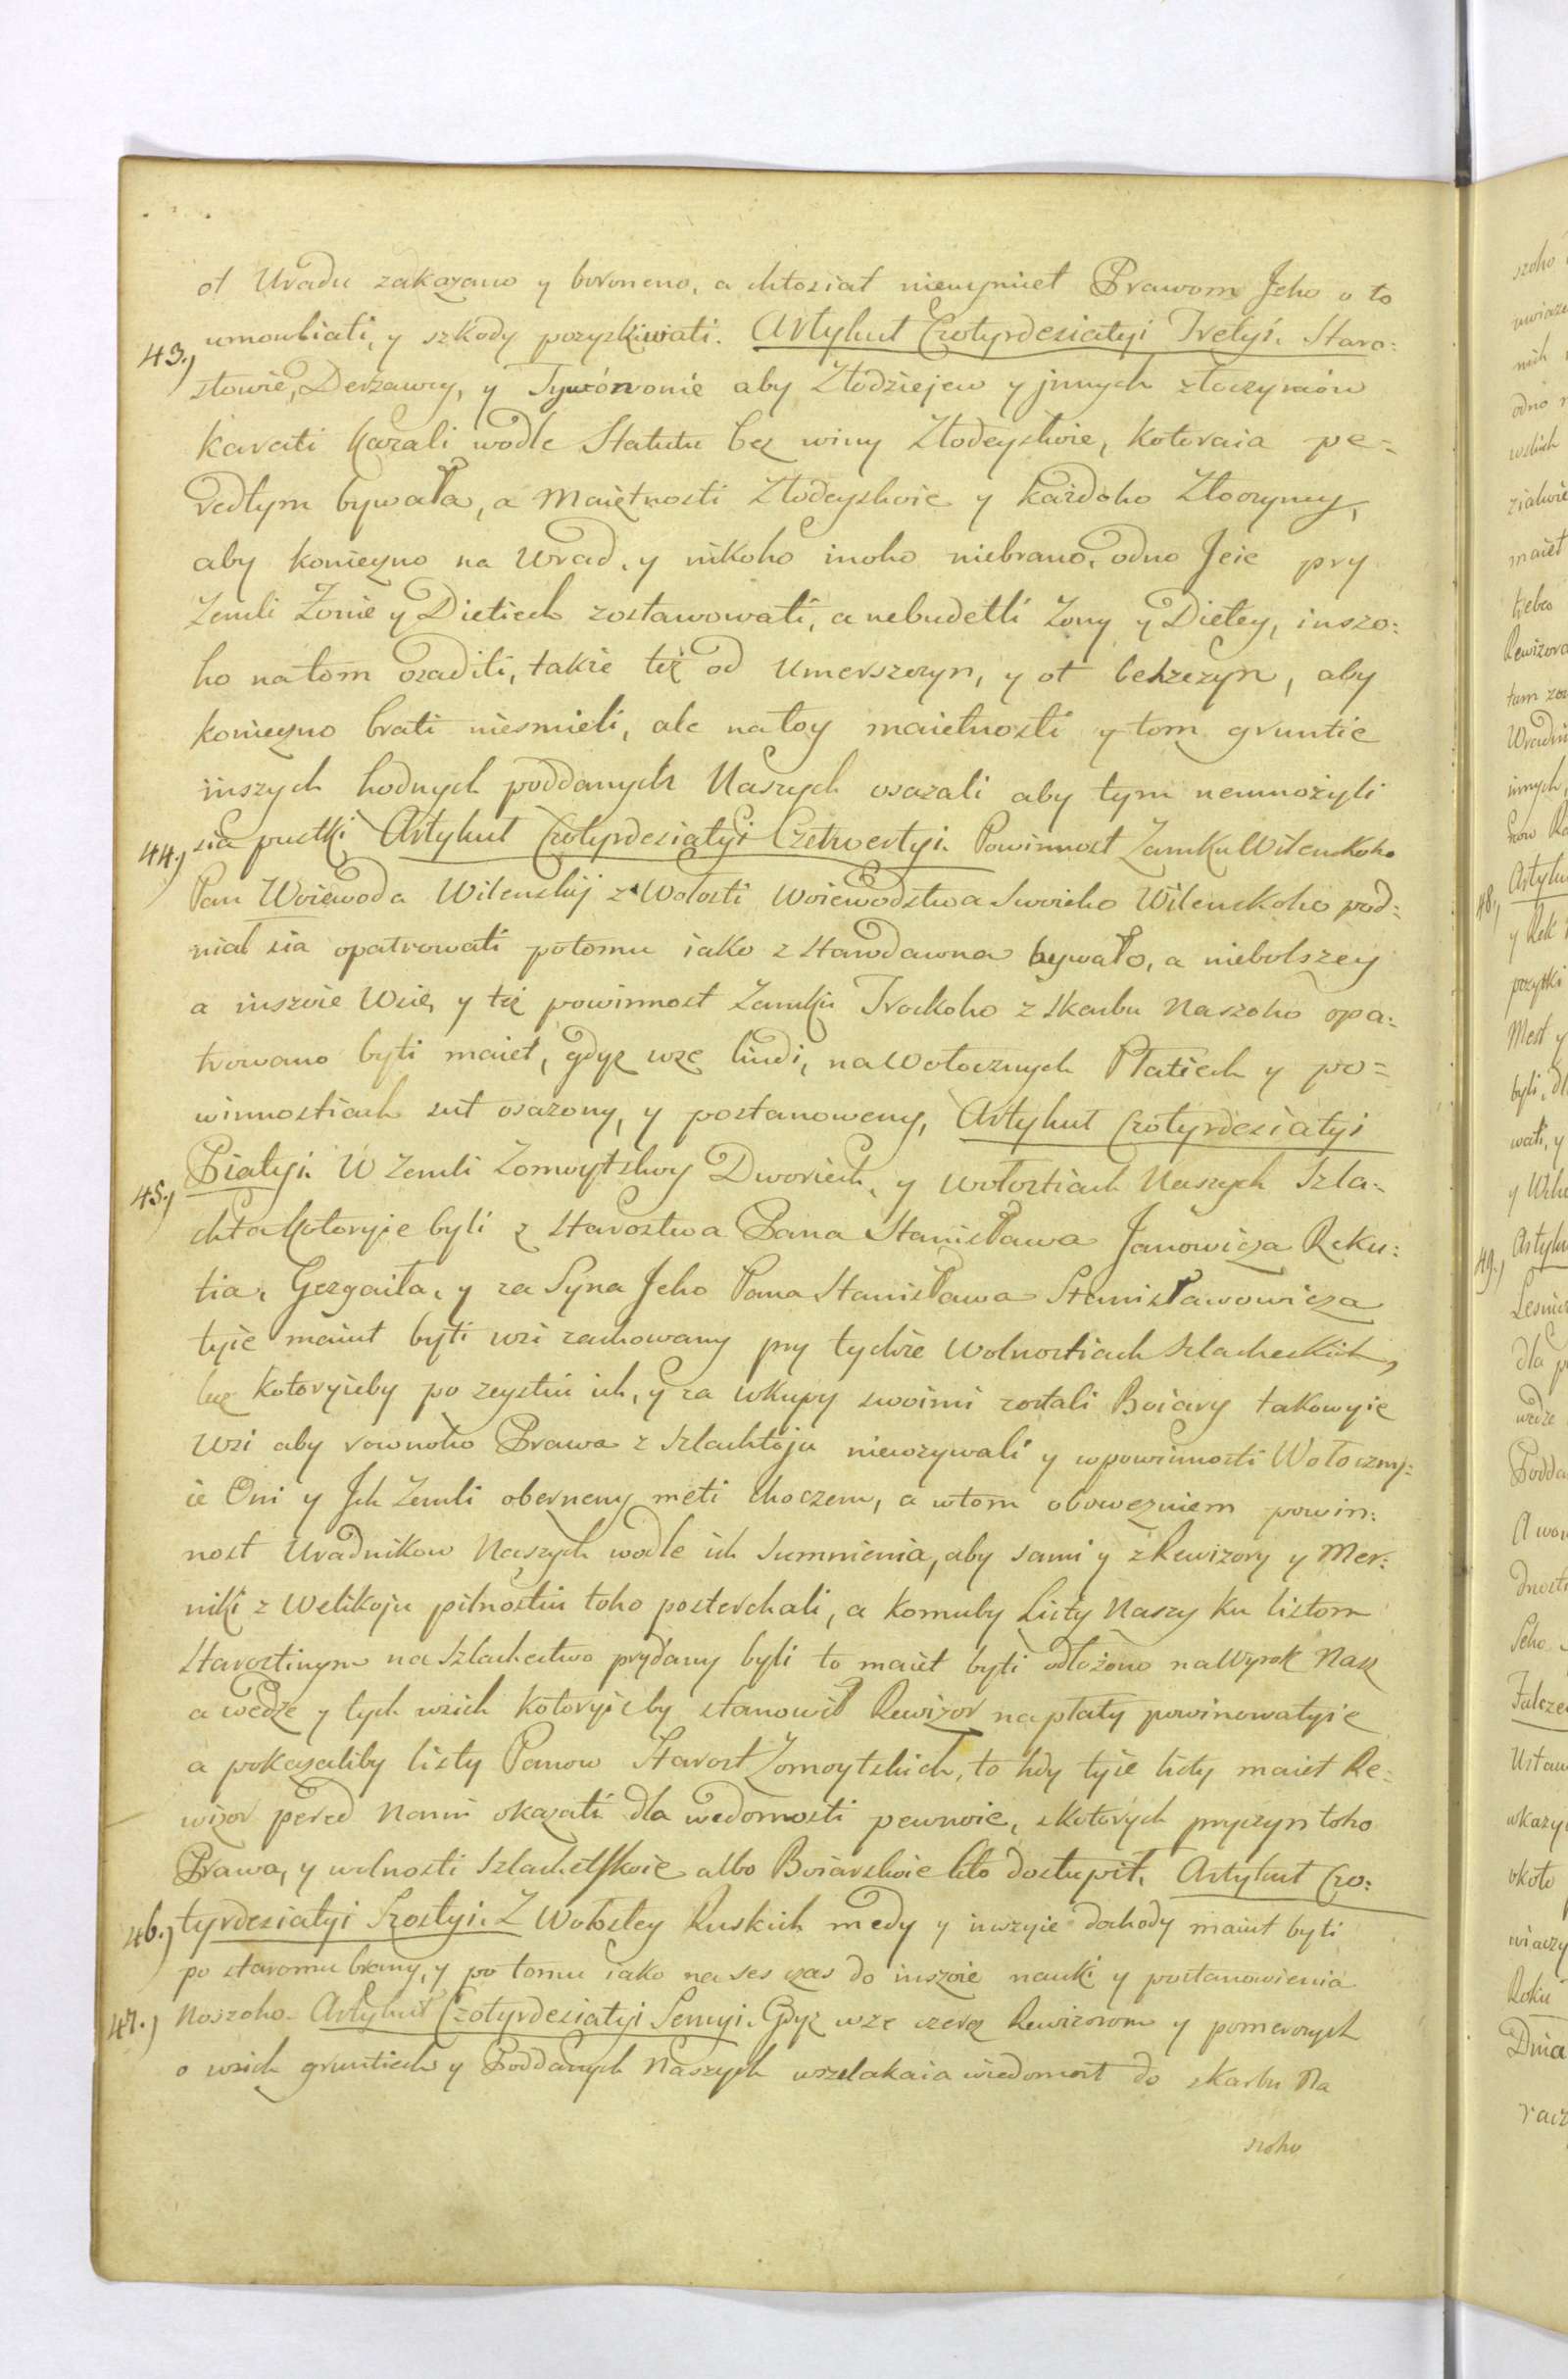 ot Uradu zakazano y boroneno, a chtosiat nieuymiet Prawom Jeho o to
43.) umowliati, y szkody pozyskiwati. Artykuł Czotyrdesiatyi Tretyi. Staro:
stowie, Derżawcy, y Tywónowie aby Złodziejew y jnnych złoczyńcow
karati kazali wodle Statutu bez winy Złodeyskoie, kotoraia pe=
redtym bywała, a Maiętnosti Złodeyskoie y każdoho Złoczyncy,
aby konieczno na Wrad, y nikoho inoho niebrano, odno Jeie pry
Zemli Żonie y Dietiech zostawowati, a nebudetli Żony y Dietey, inszo:
ho natom osaditi, takie też od Umerszczyn, y ot behszczyn, aby
konieczno brati niesmieli, ale natoy maietnosti y tom gruntie
inszych hodnych poddanych Naszych osazali aby tym nemnożyli
44.) sia pustki Artykuł Czotyrdesiatyi Czetwertyi. Powinnost Zamku Wilenskoho
Pan Woiewoda Wilenskij z Wołosti Woiewodstwa Swoieho Wilenskoho pod:
niał sia opatrowati potomu iako z Stawdawna bywało, a niebolszey
a inszoie Wsie, y też powinnost Zamku Trockoho z Skarbu Naszoho opa:
trowano byti maiet, gdyż wże liudi, na Wołocznych Płatiech y po=
winnostiach sut osazony, y postanoweny, Artykuł Czotyrdesiatyi
45.) Piatyi. W Zemli Żomoytskoy Dworiech, y Wołostiach Naszych Szla-
chta kotoryie byli z Starostwa Pana Stanisława Janowicza Reku:
tia, Gezgaiła, y za Syna Jeho Pana Stanisława Stanisławowicza
tyie maiut byti wsi zachowany pry tychże Wolnostiach szlacheckich,
luz kotoryieby po zeystiu ich, y za wkupy swoimi zostali Boiary takowyie
Wsi aby rownoho Prawa z szlachtoju nieużywali y w powinnosti Wołoczny:
ie Oni y Jch Zemli oberneny meti choczem, a wtom obowezuiem powin:
nost Uradnikow Naszych wodle ich Sumnienia, aby sami y z Rewizory y Mer:
niki z Welikoju pilnostiu toho posterehali, a komuby Listy Naszy ku listom
Starostinym na Szlachectwo prydany byli to maiet byti odłożono na Wyrok Nasz
a wedże y tych wsich kotoryieby stanowił Rewizor na płaty powinowatyie
a pokazaliby listy Panow Starost Żomoytskich, to hdy tyie listy maiet Re:
wizor pered Nami okazati dla wedomosti pewnoie, z kotorych pryczyn toho
Prawa, y wolnosti Szlachetskoie albo Boiarskoie chto dostupił. Artykuł Czo:
46.) tyrdesiatyi Szostyi. Z Wołostey Ruskich medy y inszyie dochody maiut byti
po staromu brany, y po tomu iako na ses czas do inszoie nauki y postanowienia
47.) Noszoho. Artykuł Czotyrdesiatyi Semyi. Gdyż wże czerez Rewizorow y pomerczych
o wsich gruntiech y Poddanych Naszych wszelakaia wiedomost do skarbu Na
szoho